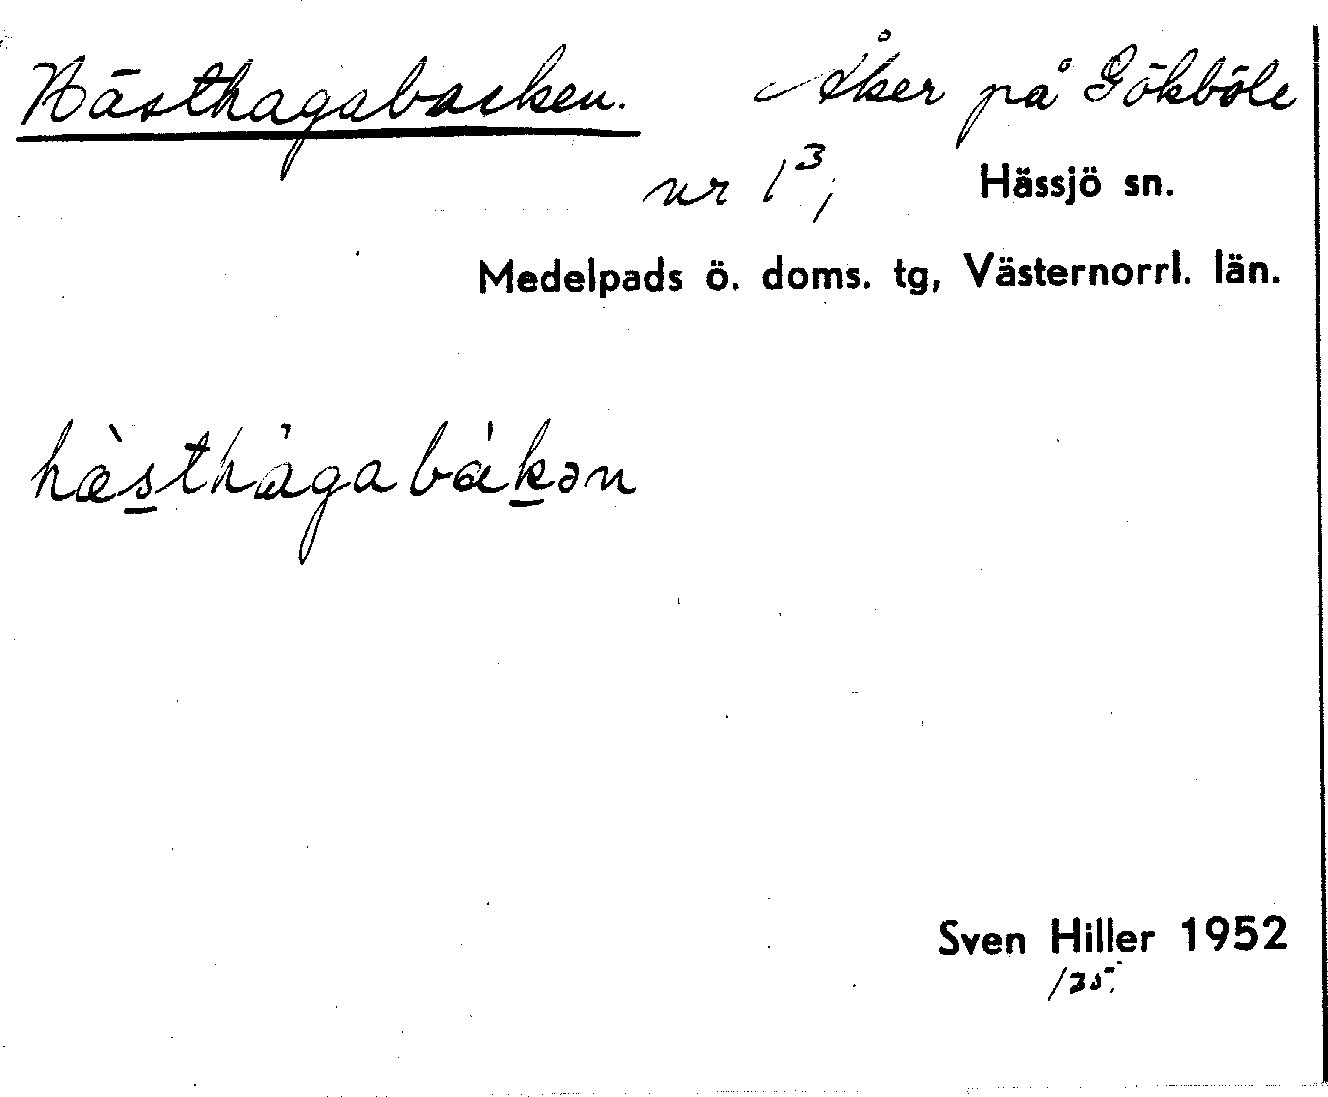 Hästhagabacken. Åker på Gökböle
nr 1³, Hässjö sn.
Medelpads ö. doms. tg, Västernorrl. län.
hæ̀sthàgabákən
Sven Hiller 1952